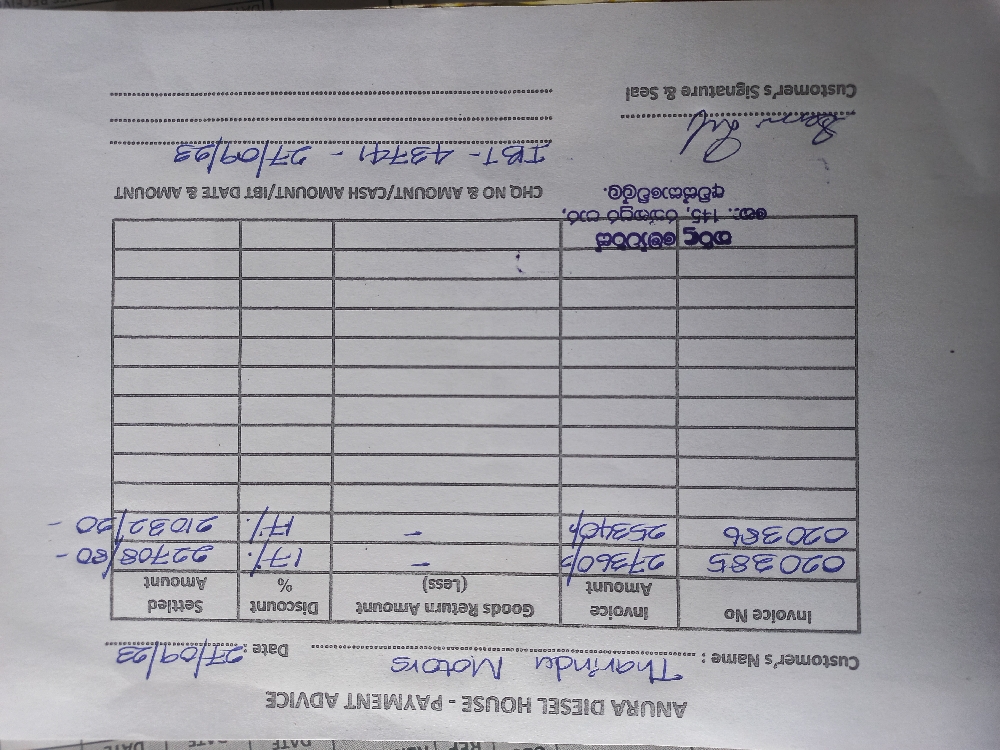 ANURA DIESEL HOUSE - PAYMENT ADVICE
Customer's Name : Tharindu Motors Date : 27/09/23
Invoice No Invoice Amount Goods Return Amount (Less) Discount % Settled Amount
020385 27360/- - 17% 22708/80 -
020386 25340/- - 17% 21032/20 -
නො: 145,
CHQ NO & AMOUNT/CASH AMOUNT/IBT DATE & AMOUNT
IBT - 43741 - 27/09/23
Customer's Signature & Seal